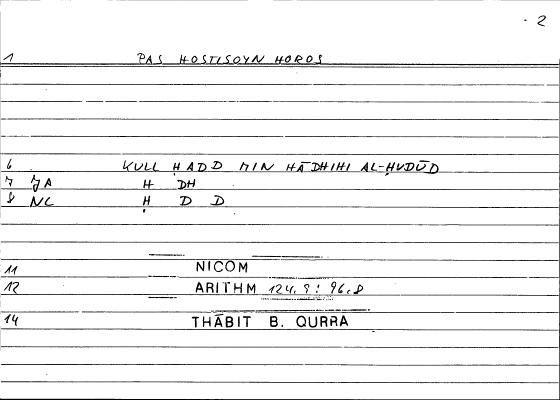 2
1 PAS HOSTISOYN HOROS
6 KULL ḤADD MIN HĀDHIHI AL-ḤUDŪD
7 JA H DH
8 NC Ḥ D D
11 NICOM
12 ARITHM 124.9: 96.8
14 THĀBIT B. QURRA